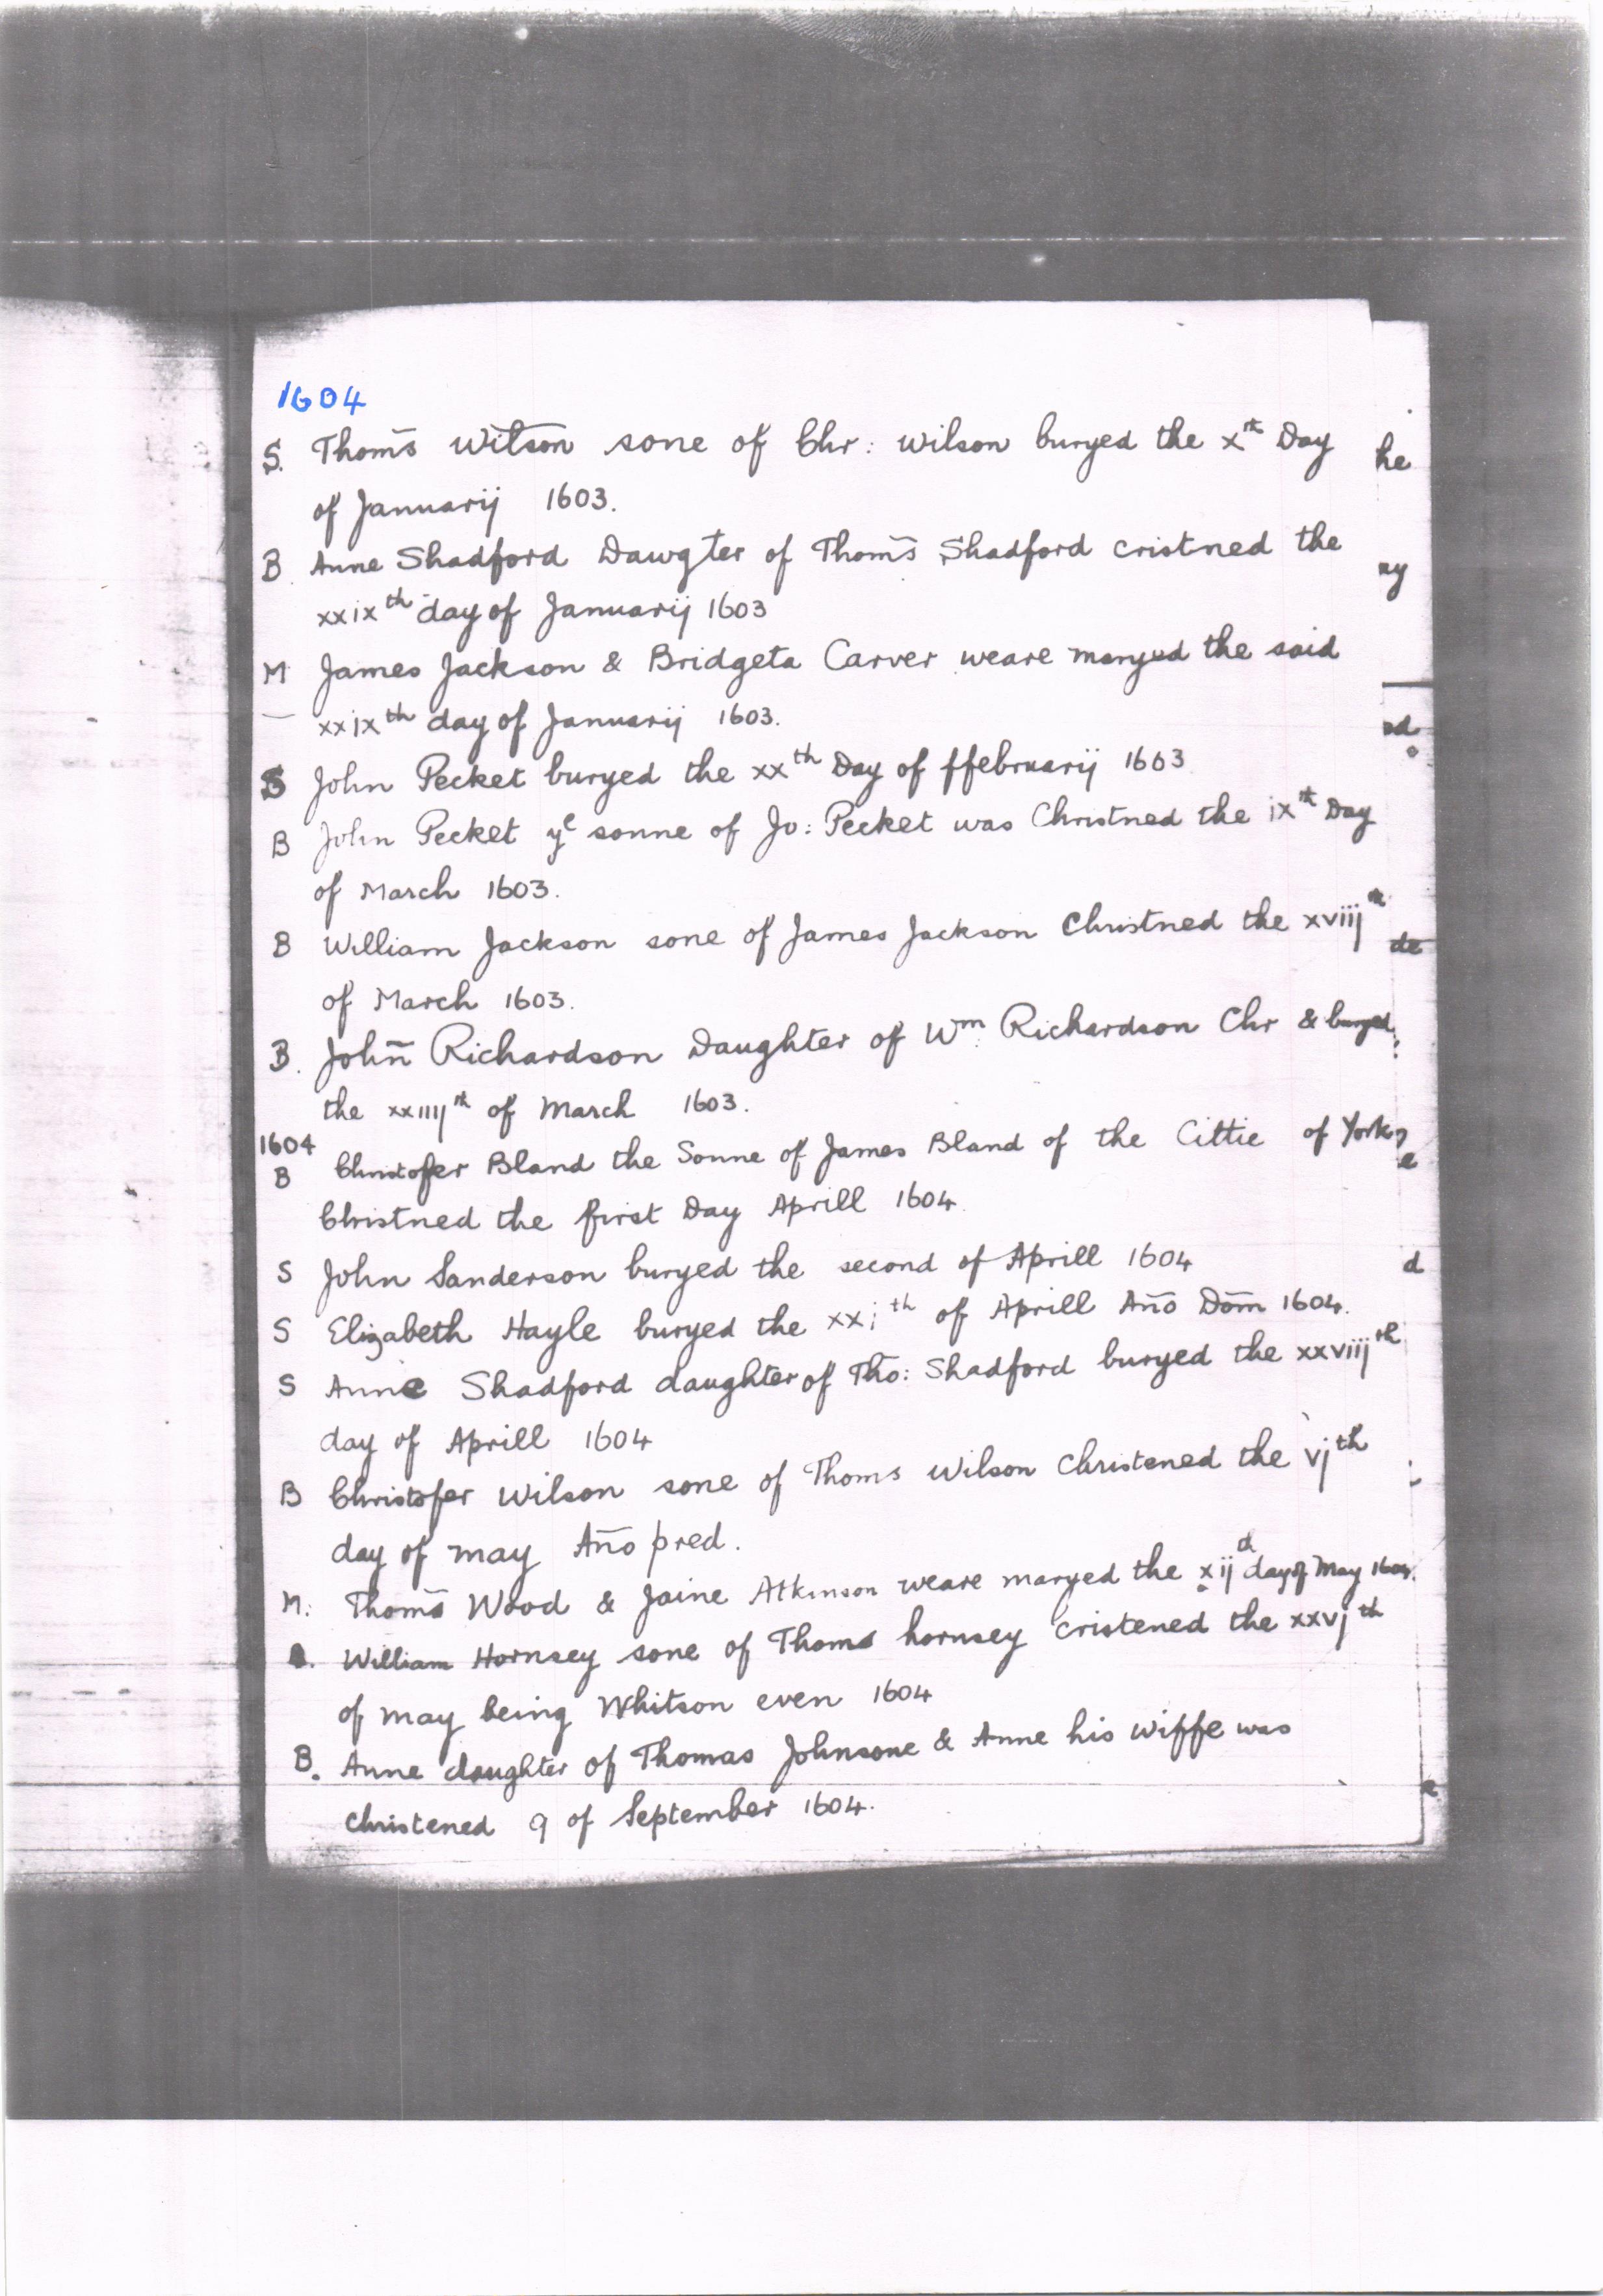 1604
S. Thom̄s Wilson sone of Chr: Wilson buryed the xth Day
of Januarij 1603.
B Anne Shadford Dawgter of Thom̄s Shadford cristned the
xxixth day of Januarij 1603
M James Jackson & Bridgeta Carver weare maryed the said
xxixth day of Januarij 1603.
S John Pecket buryed the xxth Day of ffebruarij 1603
B John Pecket ye sonne of Jo: Pecket was Christned the ixth Day
of March 1603.
B William Jackson sone of James Jackson Christned the xviijth
of March 1603.
B. Johñ Richardson Daughter of Wm: Richardson Chr & buryed
the xxiiijth of March 1603.
1604
B Christofer Bland the Sonne of James Bland of the Cittie of York
Christned the first Day Aprill 1604
S John Sanderson buryed the second of Aprill 1604
S Elizabeth Hayle buryed the xxith of Aprill Año Dom̄ 1604.
S Anne Shadford daughter of Tho: Shadford buryed the xxviijth
day of Aprill 1604
B Christofer Wilson sone of Thoms Wilson Christened the vjth
day of may Año pred.
M: Thom̄s Wood & Jaine Atkinson weare maryed the xijd day of May 1604.
William Hornsey sone of Thoms hornsey cristened the xxvjth
of may being Whitson even 1604
B. Anne daughter of Thomas Johnsone & Anne his wiffe was
Christened 9 of September 1604.
he
ay
ed
de
e
d